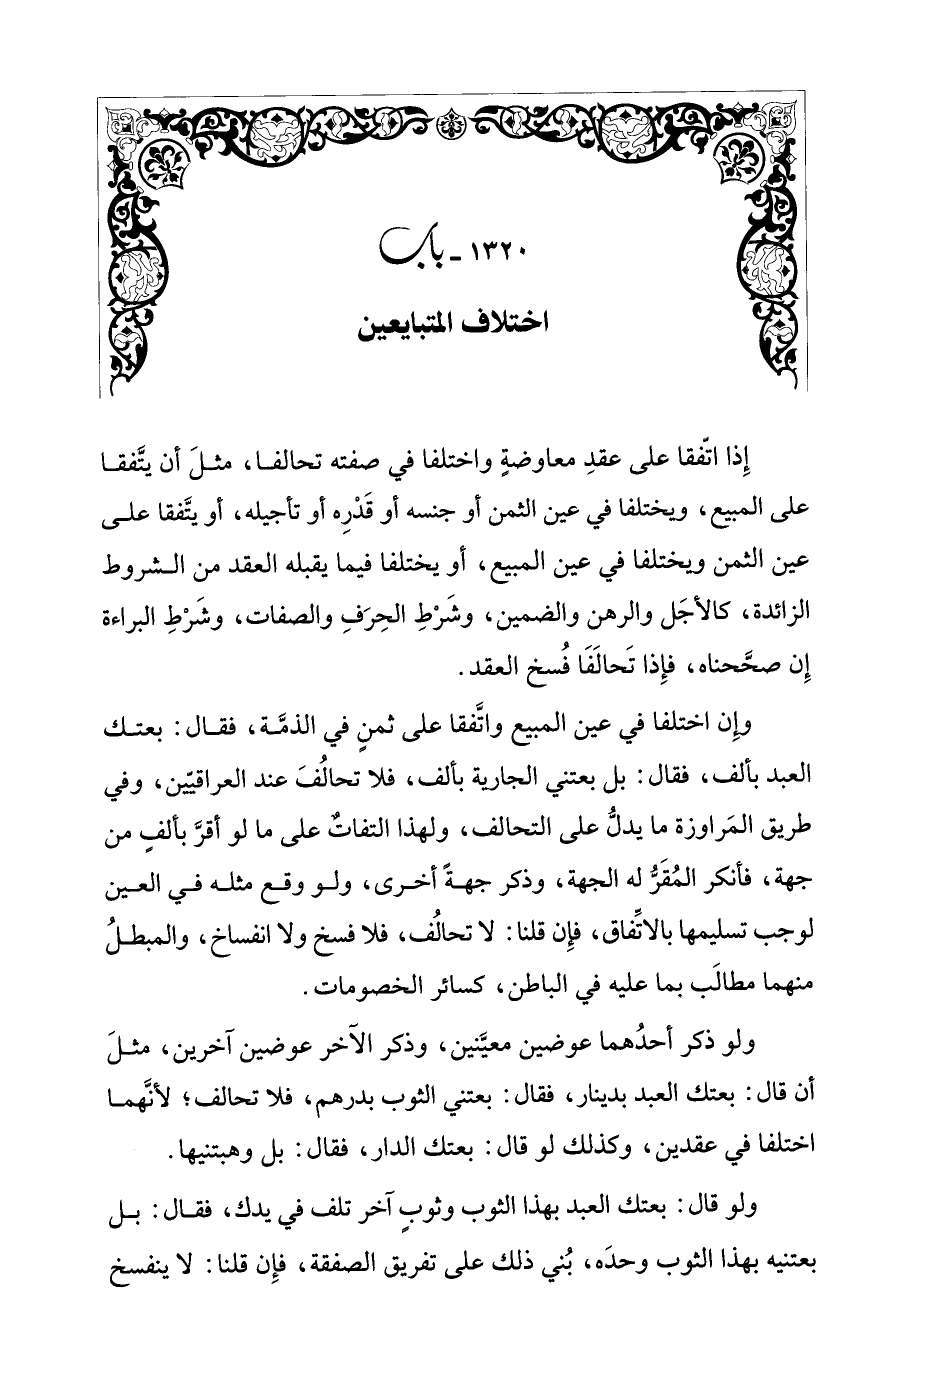 ١٣٢٠ - باب
اختلاف المتبايعين
إِذا اتّفقا على عقدِ معاوضةٍ واختلفا في صفته تحالفا، مثلَ أن يتَّفقا
على المبيع، ويختلفا في عين الثمن أو جنسه أو قَدْرِه أو تأجيله، أو يتَّفقا على
عين الثمن ويختلفا في عين المبيع، أو يختلفا فيما يقبله العقد من الشروط
الزائدة، كالأجَل والرهن والضمين، وشَرْطِ الحِرَفِ والصفات، وشَرْطِ البراءة
إِن صحَّحناه، فإِذا تَحالَفَا فُسخ العقد.
وإِن اختلفا في عين المبيع واتَّفقا على ثمنٍ في الذمَّة، فقال: بعتك
العبد بألف، فقال: بل بعتني الجارية بألف، فلا تحالُفَ عند العراقيّين، وفي
طريق المَراوزة ما يدلُّ على التحالف، ولهذا التفاتٌ على ما لو أقرَّ بألفٍ من
جهة، فأنكر المُقَرُّ له الجهة، وذكر جهةً أخرى، ولو وقع مثله في العين
لوجب تسليمها بالاتِّفاق، فإِن قلنا: لا تحالُف، فلا فسخ ولا انفساخ، والمبطلُ
منهما مطالَب بما عليه في الباطن، كسائر الخصومات.
ولو ذكر أحدُهما عوضين معيَّنين، وذكر الآخر عوضين آخرين، مثلَ
أن قال: بعتك العبد بدينار، فقال: بعتني الثوب بدرهم، فلا تحالف؛ لأنَّهما
اختلفا في عقدين، وكذلك لو قال: بعتك الدار، فقال: بل وهبتنيها.
ولو قال: بعتك العبد بهذا الثوب وثوبٍ آخر تلف في يدك، فقال: بل
بعتنيه بهذا الثوب وحدَه، بُني ذلك على تفريق الصفقة، فإِن قلنا: لا ينفسخ